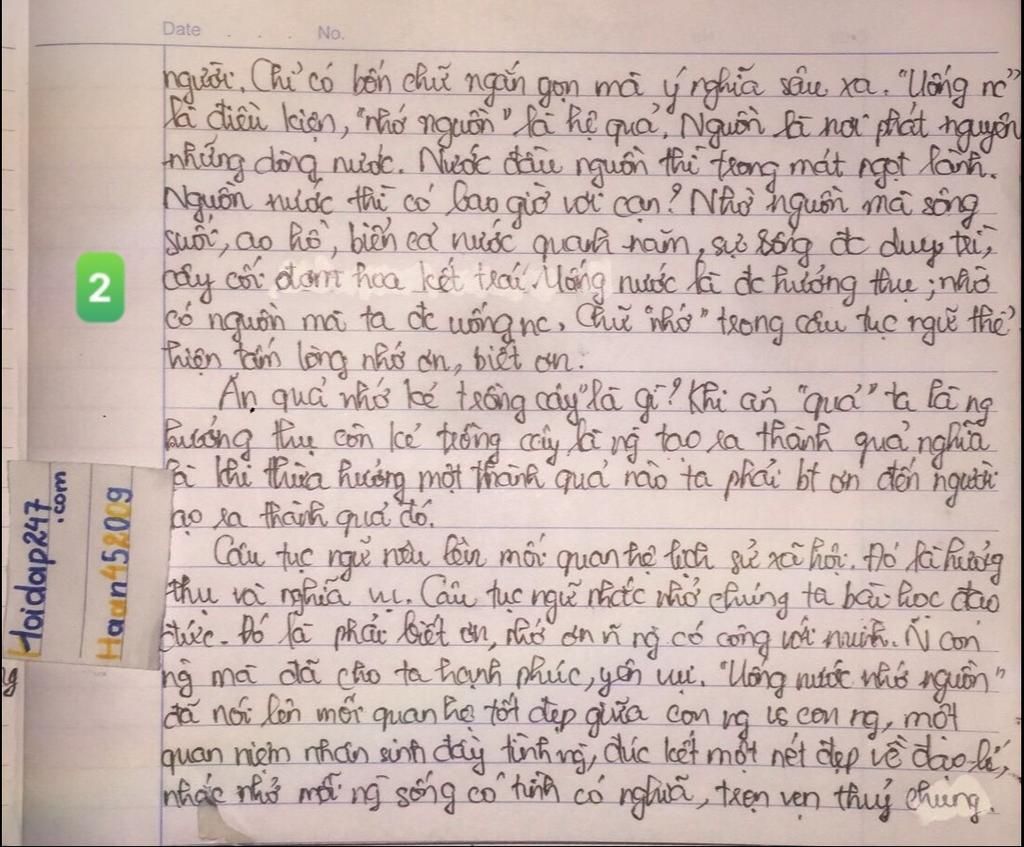 Date . . . . No.
người. Chỉ có bốn chữ ngắn gọn mà ý nghĩa sâu xa. "Uống nc"
là điều kiện, "nhớ nguồn" là hệ quả. Nguồn là nơi phát nguyên
những dòng nước. Nước đầu nguồn thì trong mát ngọt lành.
Nguồn nước thì có bao giờ vơi cạn? Nhờ nguồn mà sông
suối, ao hồ, biển cả nước quanh năm, sự sống đc duy trì,
cây cối đơm hoa kết trái. Uống nước là đc hưởng thụ; nhờ
có nguồn mà ta đc uống nc. Chữ "nhớ" trong câu tục ngữ thể
hiện tấm lòng nhớ ơn, biết ơn.
2
Ăn quả nhớ kẻ trồng cây" là gì? Khi ăn "quả" ta là ng
hưởng thụ còn kẻ trồng cây là ng tạo ra thành quả nghĩa
là khi thừa hưởng một thành quả nào ta phải bt ơn đến người
ạo ra thành quả đó.
Câu tục ngữ nêu lên mối quan hệ lịch sử xã hội. Đó là hưởng
thụ và nghĩa vụ. Câu tục ngữ nhắc nhở chúng ta bài học đạo
đức. Đó là phải biết ơn, nhớ ơn ~ ng có công với mình. ~ con
ng mà đã cho ta hạnh phúc, yên vui. "Uống nước nhớ nguồn"
đã nói lên mối quan hệ tốt đẹp giữa con ng vs con ng, một
quan niệm nhân sinh đầy tình ng, đúc kết một nét đẹp về đạo lí,
nhắc nhở mỗi ng sống có tình có nghĩa, trọn vẹn thuỷ chung.
Hoidap247
.com
Haan45209
ng